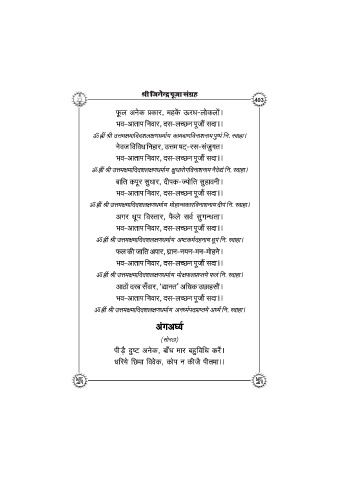 श्री जिनेन्द्र पूजा संग्रह
403
फूल अनेक प्रकार, महकें ऊरध-लोकलों।
भव-आताप निवार, दस-लच्छन पूजौं सदा।।
ॐ ह्रीं श्री उत्तमक्षमादिदशलक्षणधर्माय कामबाणविनाशनाय पुष्पं नि. स्वाहा।
नेवज विविध निहार, उत्तम षट्-रस-संजुगत।
भव-आताप निवार, दस-लच्छन पूजौं सदा।।
ॐ ह्रीं श्री उत्तमक्षमादिदशलक्षणधर्माय क्षुधारोगविनाशनाय नैवेद्यं नि. स्वाहा।
बाति कपूर सुधार, दीपक-ज्योति सुहावनी।
भव-आताप निवार, दस-लच्छन पूजौं सदा।।
ॐ ह्रीं श्री उत्तमक्षमादिदशलक्षणधर्माय मोहान्धकारविनाशनाय दीपं नि. स्वाहा।
अगर धूप विस्तार, फैले सर्व सुगन्धता।
भव-आताप निवार, दस-लच्छन पूजौं सदा।।
ॐ ह्रीं श्री उत्तमक्षमादिदशलक्षणधर्माय अष्टकर्मदहनाय धूपं नि. स्वाहा।
फल की जाति अपार, घ्रान-नयन-मन-मोहने।
भव-आताप निवार, दस-लच्छन पूजौं सदा।।
ॐ ह्रीं श्री उत्तमक्षमादिदशलक्षणधर्माय मोक्षफलप्राप्तये फलं नि. स्वाहा।
आठों दरब सँवार, 'द्यानत' अधिक उछाहसौं।
भव-आताप निवार, दस-लच्छन पूजौं सदा।।
ॐ ह्रीं श्री उत्तमक्षमादिदशलक्षणधर्माय अनर्घ्यपदप्राप्तये अर्घ्यं नि. स्वाहा।
अंगअर्घ्य
(सोरठा)
पीड़ैं दुष्ट अनेक, बाँध मार बहुविधि करैं।
धरिये छिमा विवेक, कोप न कीजै पीतमा।।